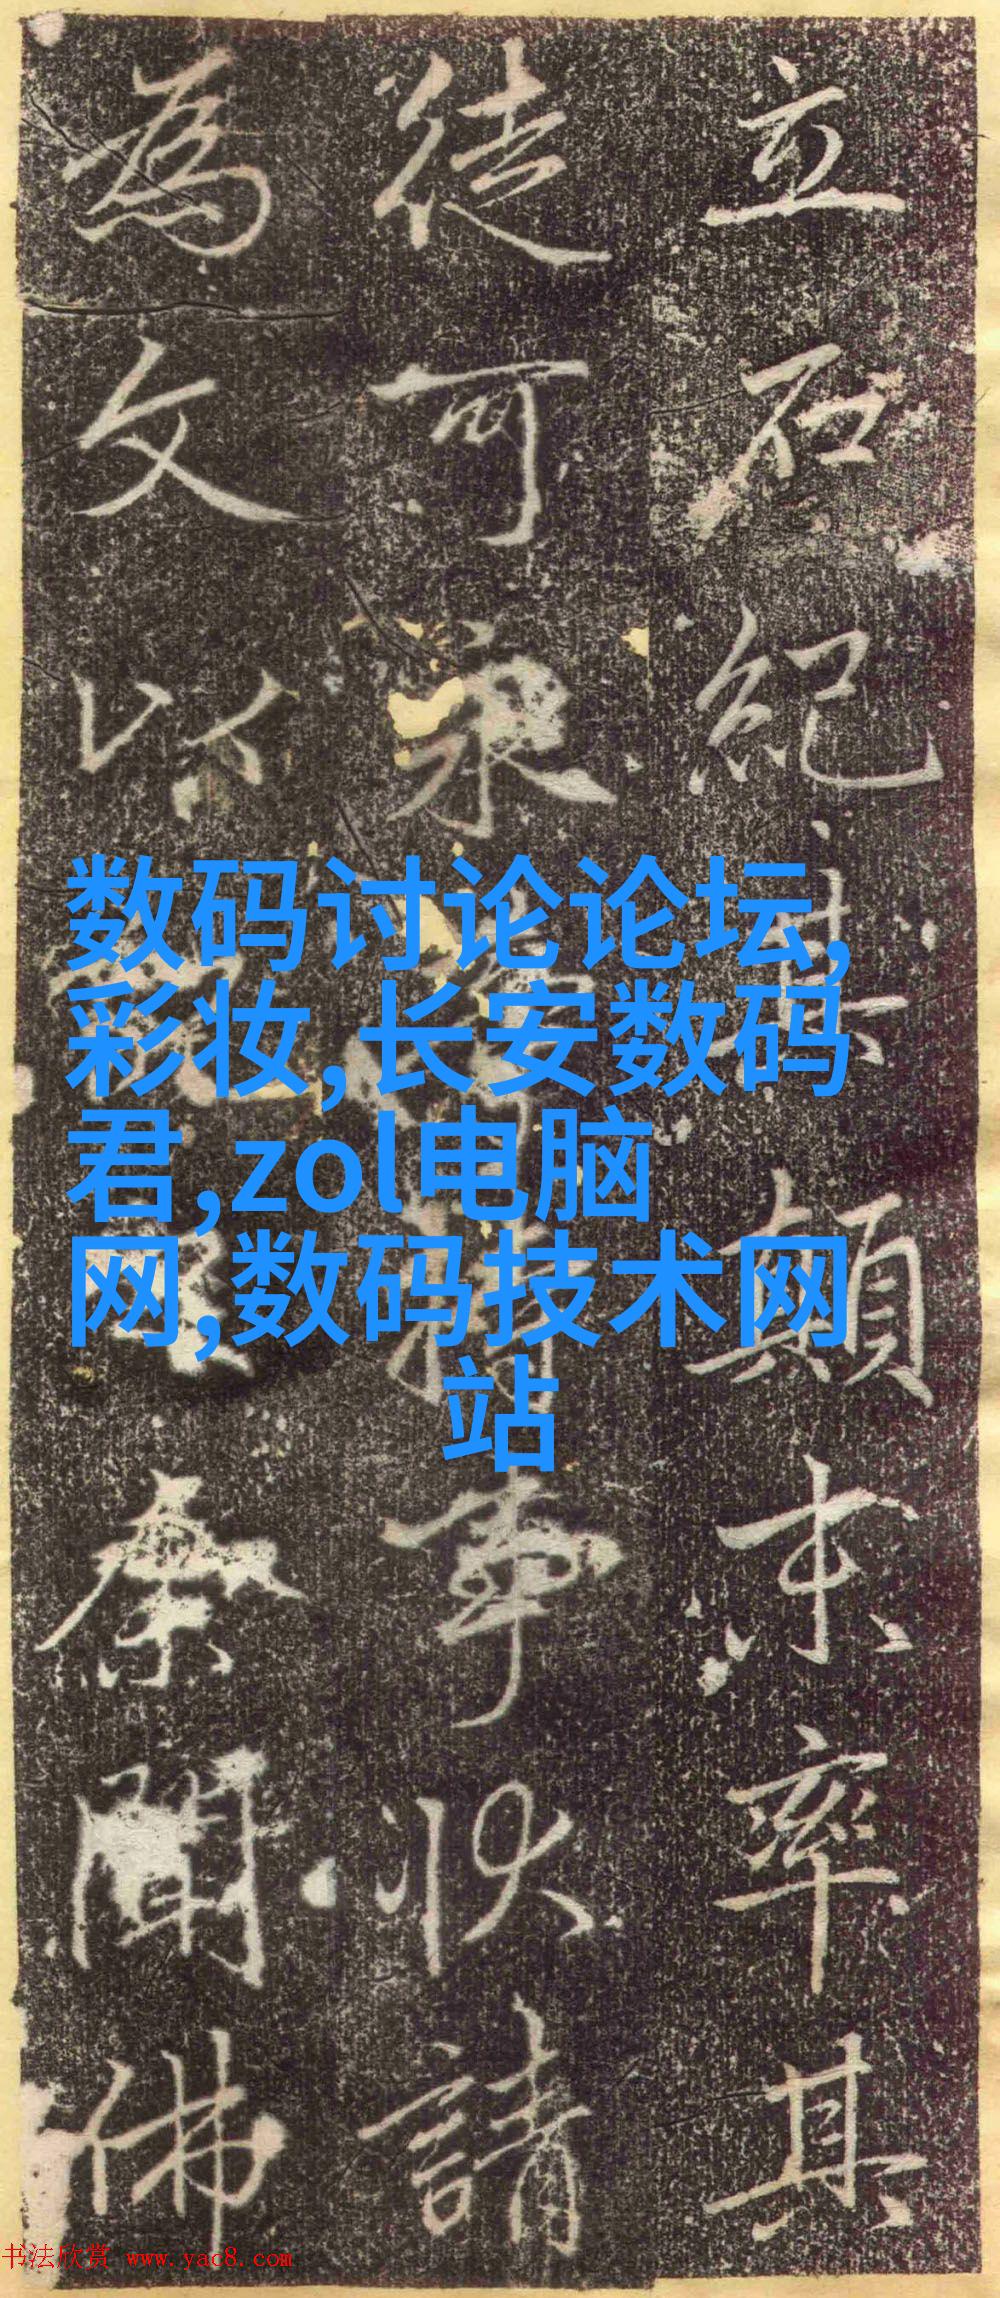 立石紀其顛末率其
徒可
事狀請
為文以
余聞佛
数码讨论论坛,
彩妆,长安数码
君,zol电脑
网,数码技术网
站
书法欣赏 www.yac8.com